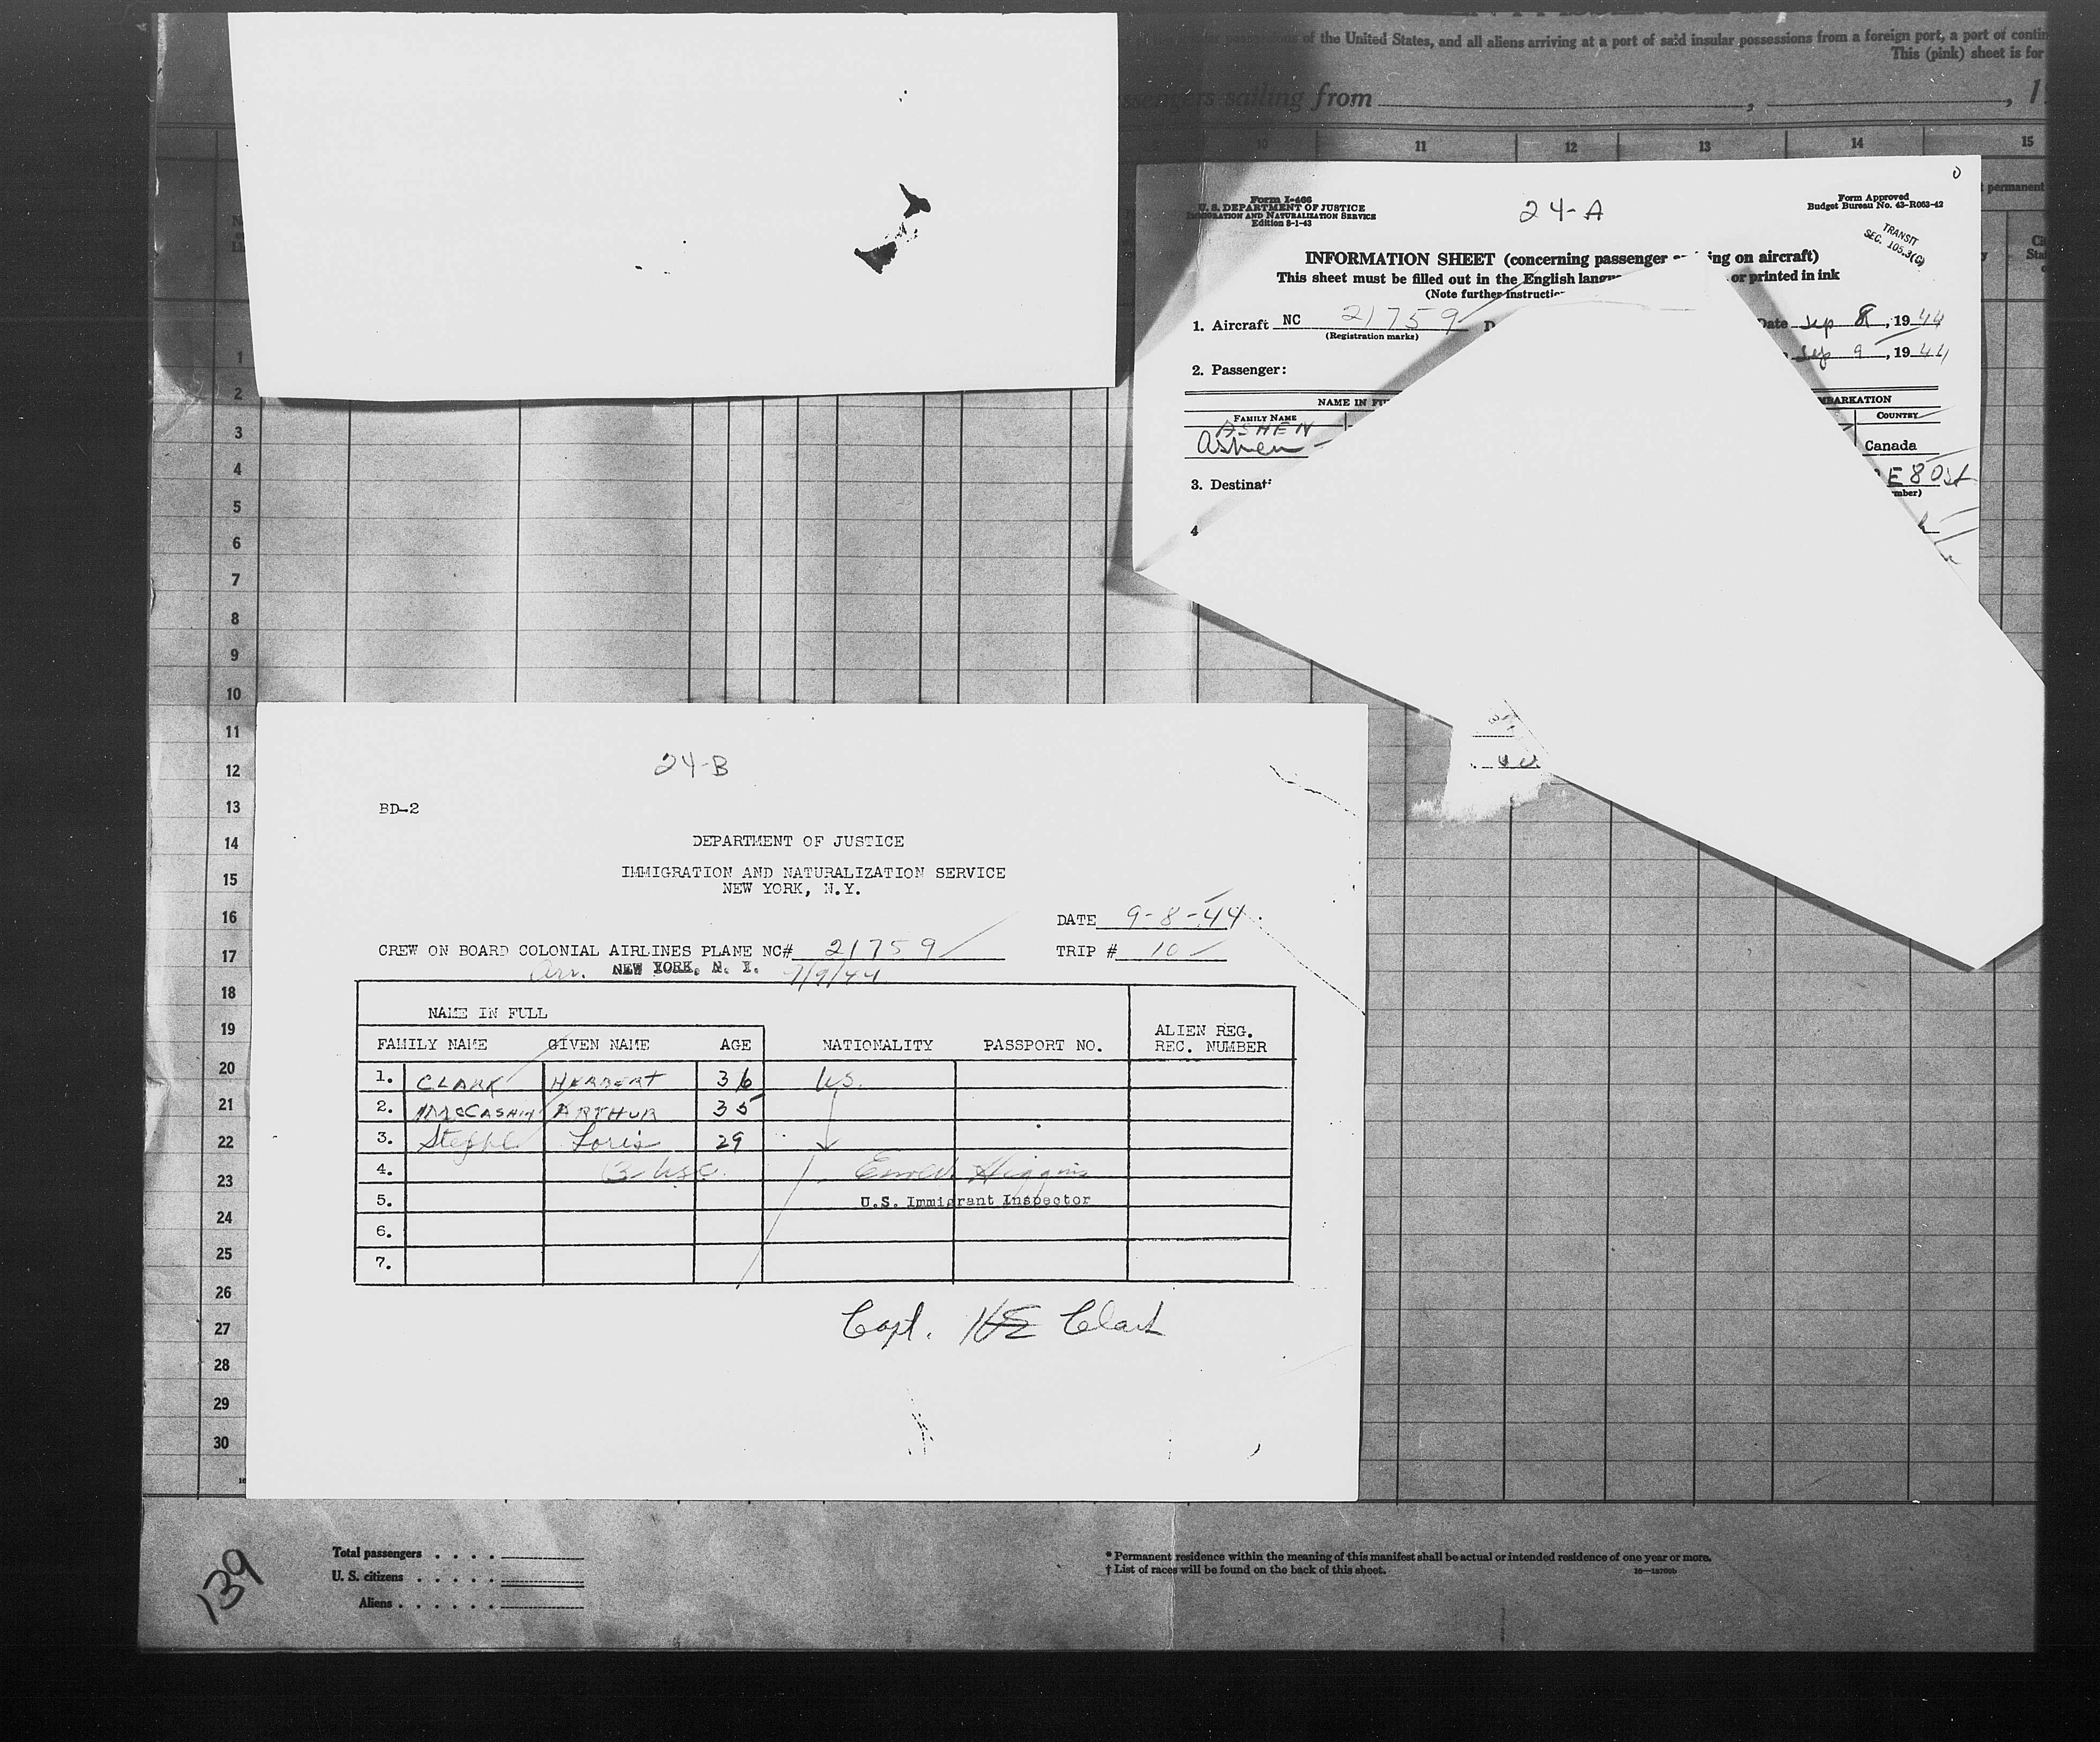 of the United States, and all aliens arriving at a port of said insular possessions from a foreign port, a port of contin
This (pink) sheet is for
ssengers sailing from , , 1
10 11 12 13 14 15
permanent
Form I-466
U. S. DEPARTMENT OF JUSTICE
IMMIGRATION AND NATURALIZATION SERVICE
Edition 8-1-43
24-A
Form Approved
Budget Bureau No. 43-R063-42
TRANSIT
SEC. 105.3(C)
INFORMATION SHEET (concerning passenger ing on aircraft)
This sheet must be filled out in the English or printed in ink
(Note further
1. Aircraft NC 21759 Date Sep 8, 1944
(Registration marks)
Sep 9, 1944
2. Passenger:
NAME IN BARKATION
FAMILY NAME COUNTRY
ASHEN
Ashen Canada
3. Destinat E 80 St
mber)
4
1
2
3
4
5
6
7
8
9
10
11
12
13
14
15
16
17
18
19
20
21
22
23
24
25
26
27
28
29
30
24-B
BD-2
DEPARTMENT OF JUSTICE
IMMIGRATION AND NATURALIZATION SERVICE
NEW YORK, N.Y.
DATE 9-8-44
CREW ON BOARD COLONIAL AIRLINES PLANE NC# 21759 TRIP # 10
Arr. NEW YORK, N. Y. 9/9/44
NAME IN FULL
FAMILY NAME GIVEN NAME AGE NATIONALITY PASSPORT NO. ALIEN REG. REC. NUMBER
1. CLARK HERBERT 36 U.S.
2. McCASHIN ARTHUR 35
3. Loris 29
4. 3 usc. Higgins
5. U.S. Immigrant Inspector
6.
7.
Capt. HE Clark
139
Total passengers . . . .
U. S. citizens . . . . .
Aliens . . . . . .
* Permanent residence within the meaning of this manifest shall be actual or intended residence of one year or more.
† List of races will be found on the back of this sheet.